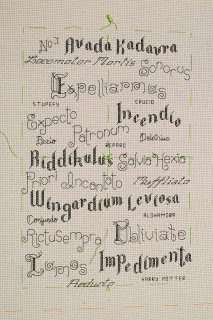 Nox Avada Kedavra
Locomotor Mortis Sonorus
Expelliarmus
STUPEFY CRUCIO
Expecto Incendio
Accio Patronum Deletrius
REPARO
Riddikulus Salvio Hexia
Priori Incantato Muffliato
Wingardium Leviosa
Confundo ALOHAMORA
Rictusempra Obliviate
Lumos Impedimenta
Reducto HARRY POTTER